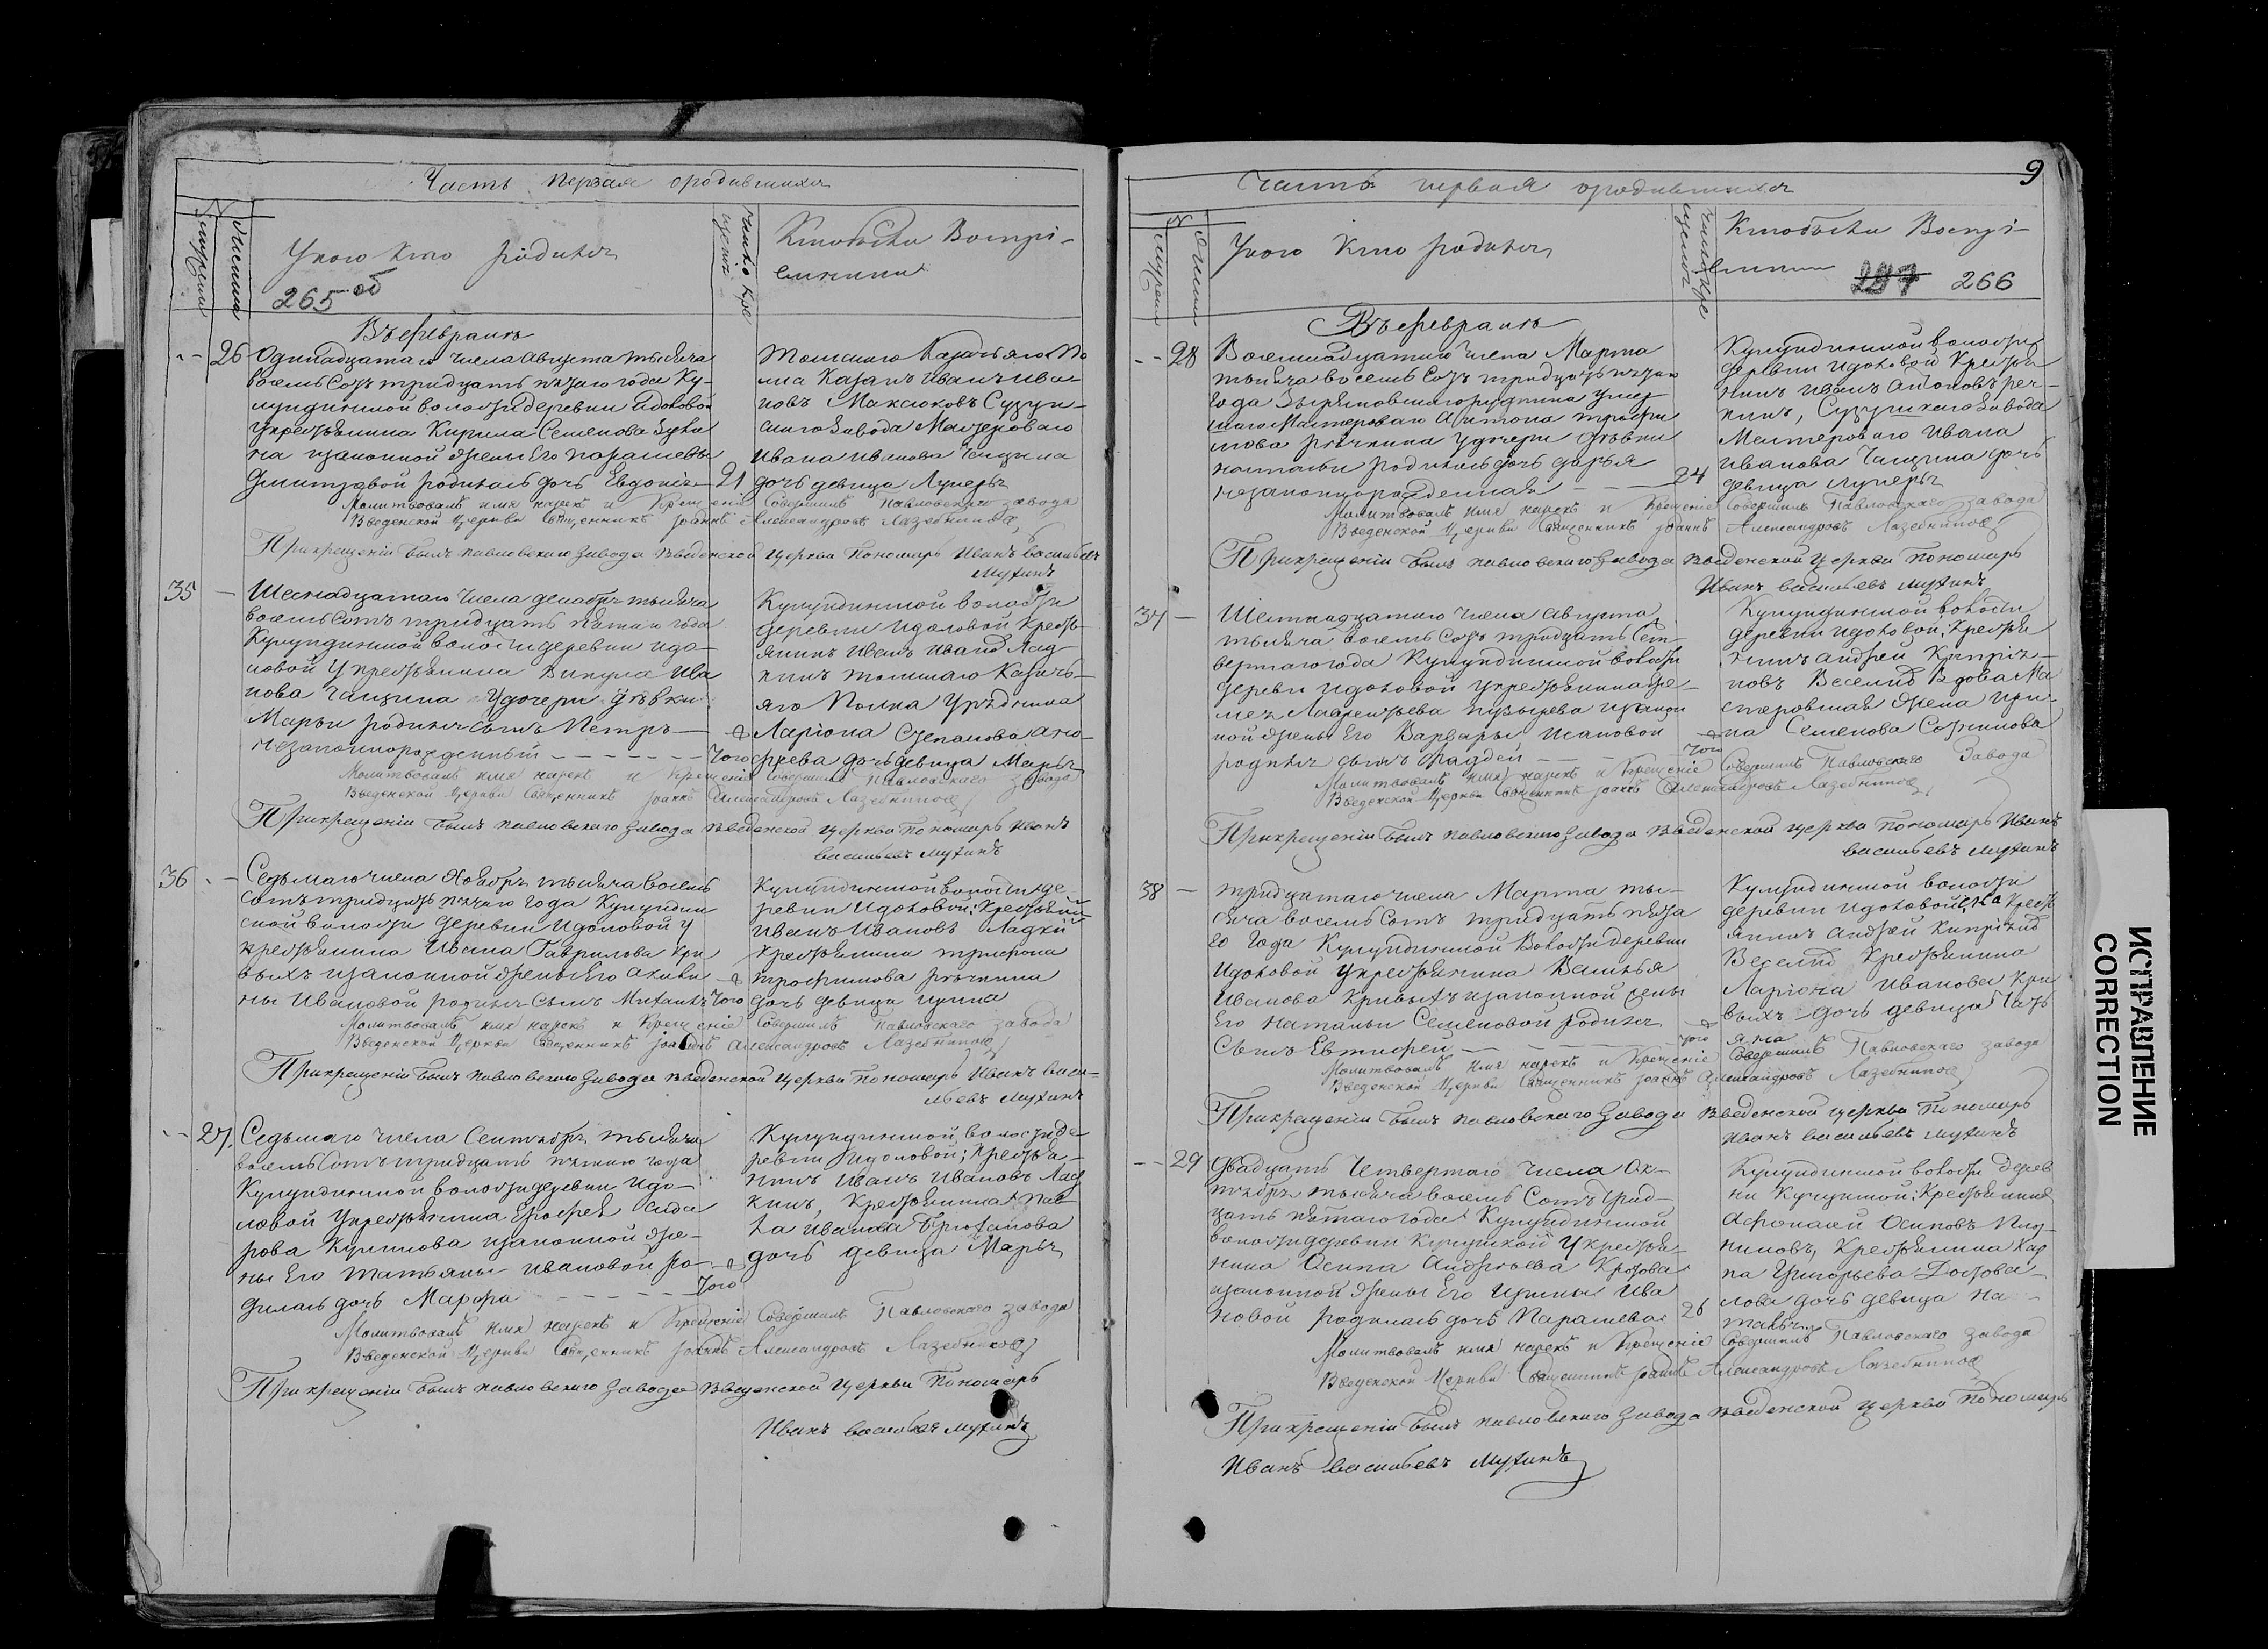 Часть первая ородившихся
У кого кто родился
265 об
Число кре
щенія
Кто были Воспрі-
емники
Въ февралѣ
26 Одинадцатаго числа Августа тысяча
восемь Сотъ тридцать пятаго года Ку-
лундинской волости деревни Идоловой
у крестьянина Кирила Семенова
на изаконной жены Его Парасковьи
Дмитревой родилась дочь Евдокія 21
Томского Казачьяго По
лка Казакъ Иванъ Ива-
новъ Максюковъ Сузун-
скаго завода Мастероваго
Ивана Иванова Чащина
дочь девица Лукерья
Молитвовалъ имя нарекъ и Крещеніе Совершилъ Павловскаго завода
Введенской Церкви Священникъ Іоаннъ Александровъ Лазебниковъ
При крещеніи былъ павловского завода введенской церкви Пономарь Иванъ васильевъ
Мухинъ
35 Шестнадцатаго числа декабря тысяча
восемь Сотъ тридцать пятаго года
Кулундинской волости деревни идо-
ловой у крестьянина Викула Ива
нова Чащина у дочери девки
Марьи родился сынъ Петръ
незаконнорожденный
того
Кулундинской волости
деревни Идоловой Кресть-
янинъ Иванъ Иванов Лад
кинъ томскаго Казачь-
яго Полка Урядника
Ларіона Степанова
дочь девица Марья
Молитвовалъ имя нарекъ и Крещеніе Совершилъ Павловскаго завода
Введенской Церкви Священникъ Іоаннъ Александровъ Лазебниковъ
При крещеніи былъ павловского завода введенской церкви Пономарь Иванъ
васильевъ Мухинъ
36 Седьмаго числа Ноября тысяча восемь
Сотъ тридцать пятаго года Кулундин
ской волости деревни Идоловой у
крестьянина Ивана Гаврилова Кри
выхъ изаконной жены Его Акили
ны Ивановой родился Сынъ Михаилъ того
Кулундинской волости де-
ревни Идоловой; Крестьянин
Иванъ Ивановъ Ладки
крестьянина трифона
трофимова речкина
дочь девица ирина
Молитвовалъ имя нарекъ и Крещеніе Совершилъ Павловскаго завода
Введенской Церкви Священникъ Іоаннъ Александровъ Лазебниковъ
При крещеніи былъ павловского завода введенской церкви Пономарь Иванъ васи-
льевъ Мухинъ
27. Седьмаго числа Сентября тысяча
восемь Сотъ тридцать пятаго года
Кулундинской волости деревни Идо-
ловой у крестьянина Ерофея Сидо
рова Куликова изаконной же-
ны Его Татьяны Ивановой ро-
дилась дочь Марфа
того
Кулундинской волости де
ревни Идоловой; Крестья-
нинъ Иванъ Ивановъ Лад
кинъ, Крестьянина Пав-
ла Иванова Брюханова
дочь девица Марья
Молитвовалъ имя нарекъ и Крещеніе Совершилъ Павловскаго завода
Введенской Церкви Священникъ Іоаннъ Александровъ Лазебниковъ
При крещеніи былъ павловского завода введенской церкви Пономарь
Иванъ васильевъ Мухинъ
9
Часть первая ородившихся
У кого кто родился
Число кре
щенія
Кто были Воспрі-
емники 266
Въ февралѣ
28 Восемнадцатаго числа Марта
тысяча восемь Сотъ тридцать пятаго
года Зыряновшаго рудника умер
шаго Мастероваго Антона трофи
мова речкина у дочери девки
натальи родилась дочь дарья
незаконнорожденная 24
Кулундинской волости
деревни Идоловой Крестья
нинъ Иванъ Антоновъ реч-
кинъ, Сузунскаго завода
Мастероваго Ивана
Иванова Чащина дочь
девица лукерья
Молитвовалъ имя нарекъ и Крещеніе Совершилъ Павловскаго завода
Введенской Церкви Священникъ Іоаннъ Александровъ Лазебниковъ
При крещеніи былъ павловского завода введенской церкви пономарь
Иванъ васильевъ Мухинъ
37 Шестнадцатаго числа Августа
тысяча восемь Сотъ тридцать Чет-
вертаго года Кулундинской волости
деревни Идоловой у крестьянина
Лаврентьева пузырева изакон
ной жены Его Варвары Ивановой
родился сынъ Фаддей
того
Кулундинской волости
деревни идоловой; Крестья
нинъ Андрей Кипрія-
новъ Веселков Вдова Ма
стеровшая жена Ири-
на Семенова
Молитвовалъ имя нарекъ и Крещеніе Совершилъ Павловскаго Завода
Введенской Церкви Священникъ Іоаннъ Александровъ Лазебниковъ
При крещеніи былъ павловского завода введенской церкви Пономарь Иванъ
васильевъ Мухинъ
38 тридцатаго числа Марта ты-
сяча восемь Сотъ тридцать пята
го года Кулундинской Волости деревни
Идоловой у крестьянина Василья
Иванова Кривыхъ изаконной жены
Его Натальи Семеновой родился
Сынъ Евтифей
того
Кулундинской волости
деревни идоловой Кресть
янинъ Андрей Кипріянов
Крестьянина
Ларіона Иванова Кри
выхъ дочь девица Тать
яна
Молитвовалъ имя нарекъ и Крещеніе Совершилъ Павловскаго завода
Введенской Церкви Священникъ Іоаннъ Александровъ Лазебниковъ
При крещеніи былъ павловского завода введенской церкви Пономарь
Иванъ васильевъ Мухинъ
29 Двадцать Четвертаго числа Ок-
тября тысяча восемь Сотъ трид-
цать пятаго года Кулундинской
волости деревни Кучукской у крестья-
нина Осипа Андреева Кротова
изаконной жены Его Ирины Ива
новой родилась дочь Парасковья 26
Кулундинской волости дерев
ни Кучукской; Крестьянинъ
Афонасей Осиповъ
Крестьянина Кар
па Григорьева
лова дочь девица На-
талья
Молитвовалъ имя нарекъ и Крещеніе Совершилъ Павловскаго завода
Введенской Церкви Священникъ Іоаннъ Александровъ Лазебниковъ
При крещеніи былъ павловского завода введенской церкви Пономарь
Иванъ васильевъ Мухинъ
ИСПРАВЛЕНИЕ
CORRECTION